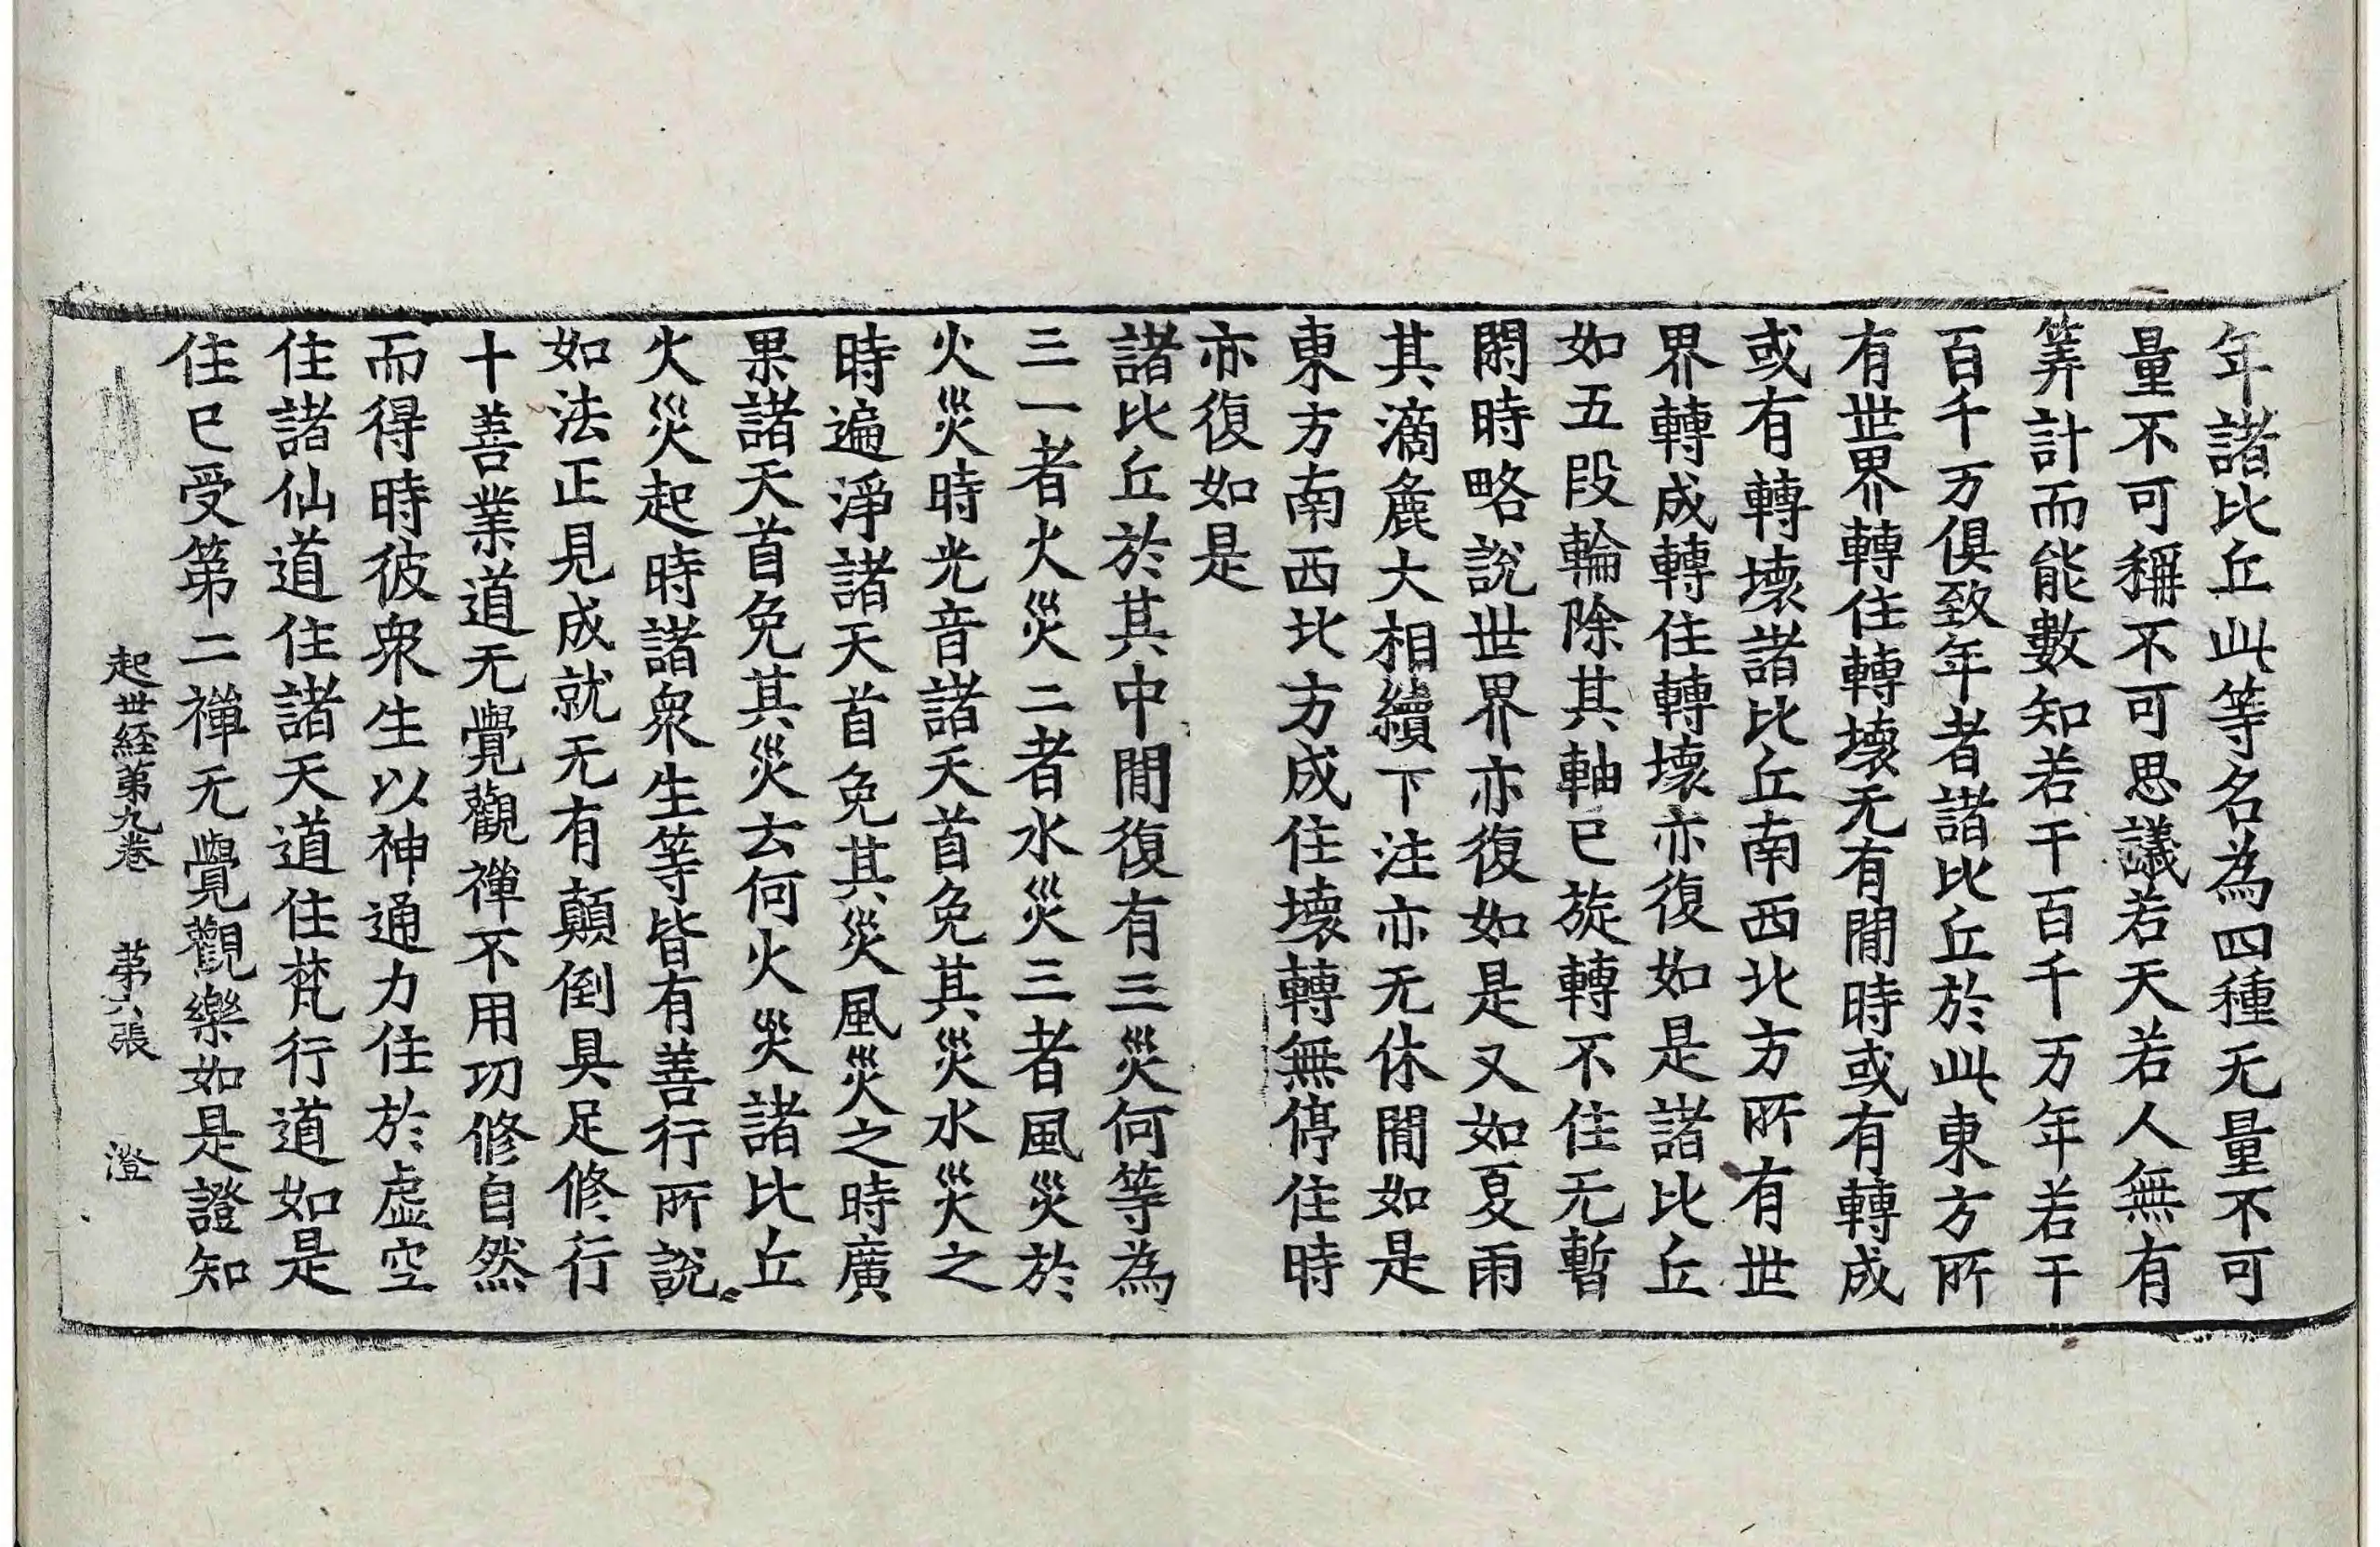 年諸比丘此等名為四種无量不可
量不可稱不可思議若天若人無有
筭計而能數知若干百千万年若干
百千万俱致年者諸比丘於此東方所
有世界轉住轉壞无有間時或有轉成
或有轉壞諸比丘南西北方所有世
界轉成轉住轉壞亦復如是諸比丘
如五段輪除其軸已旋轉不住无暫
閑時略說世界亦復如是又如夏雨
其滴麁大相續下注亦无休間如是
東方南西北方成住壞轉無停住時
亦復如是
諸比丘於其中間復有三災何等為
三一者火災二者水災三者風災於
火災時光音諸天首免其災水災之
時遍淨諸天首免其災風災之時廣
果諸天首免其災云何火災諸比丘
火災起時諸衆生等皆有善行所說
如法正見成就无有顛倒具足修行
十善業道无覺觀禪不用功修自然
而得時彼衆生以神通力住於虛空
住諸仙道住諸天道住梵行道如是
住已受第二禪无覺觀樂如是證知
起世経苐九卷 苐六張 澄